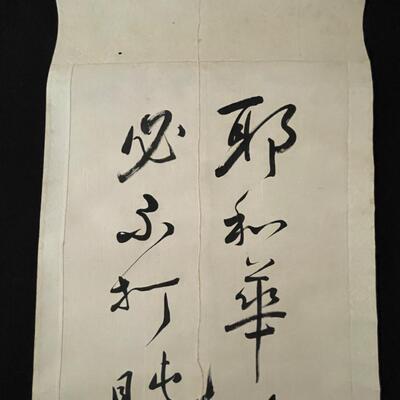 耶和華
必不打盹